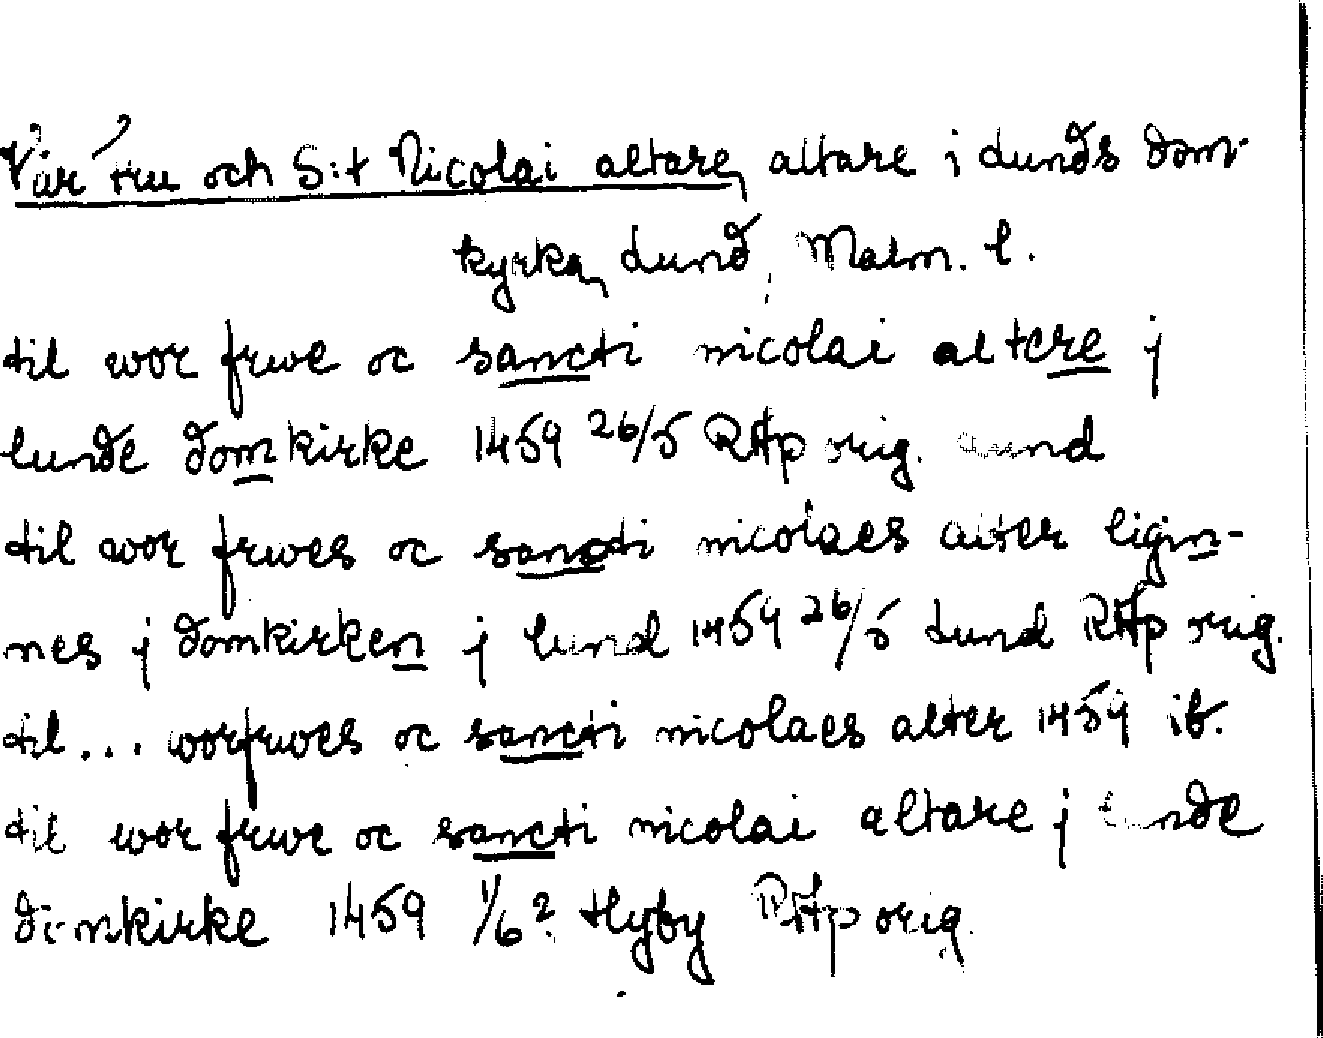 Vår fru och S:t Nicolai altare, altare i Lunds dom-
kyrka, Lund, Malm. l.
til wor frwe oc sancti nicolai altere j
lunde domkirke 1459 26/5 RAp orig. Lund
til wor frwes oc sancti nicolaes alter ligin-
nes j domkirken j lund 1459 26/5 Lund RAp orig.
til... worfrwes oc sancti nicolaes alter 1459 ib.
til wor frwe oc sancti nicolai altare j lunde
domkirke 1459 1/6? Hyby RAp orig.